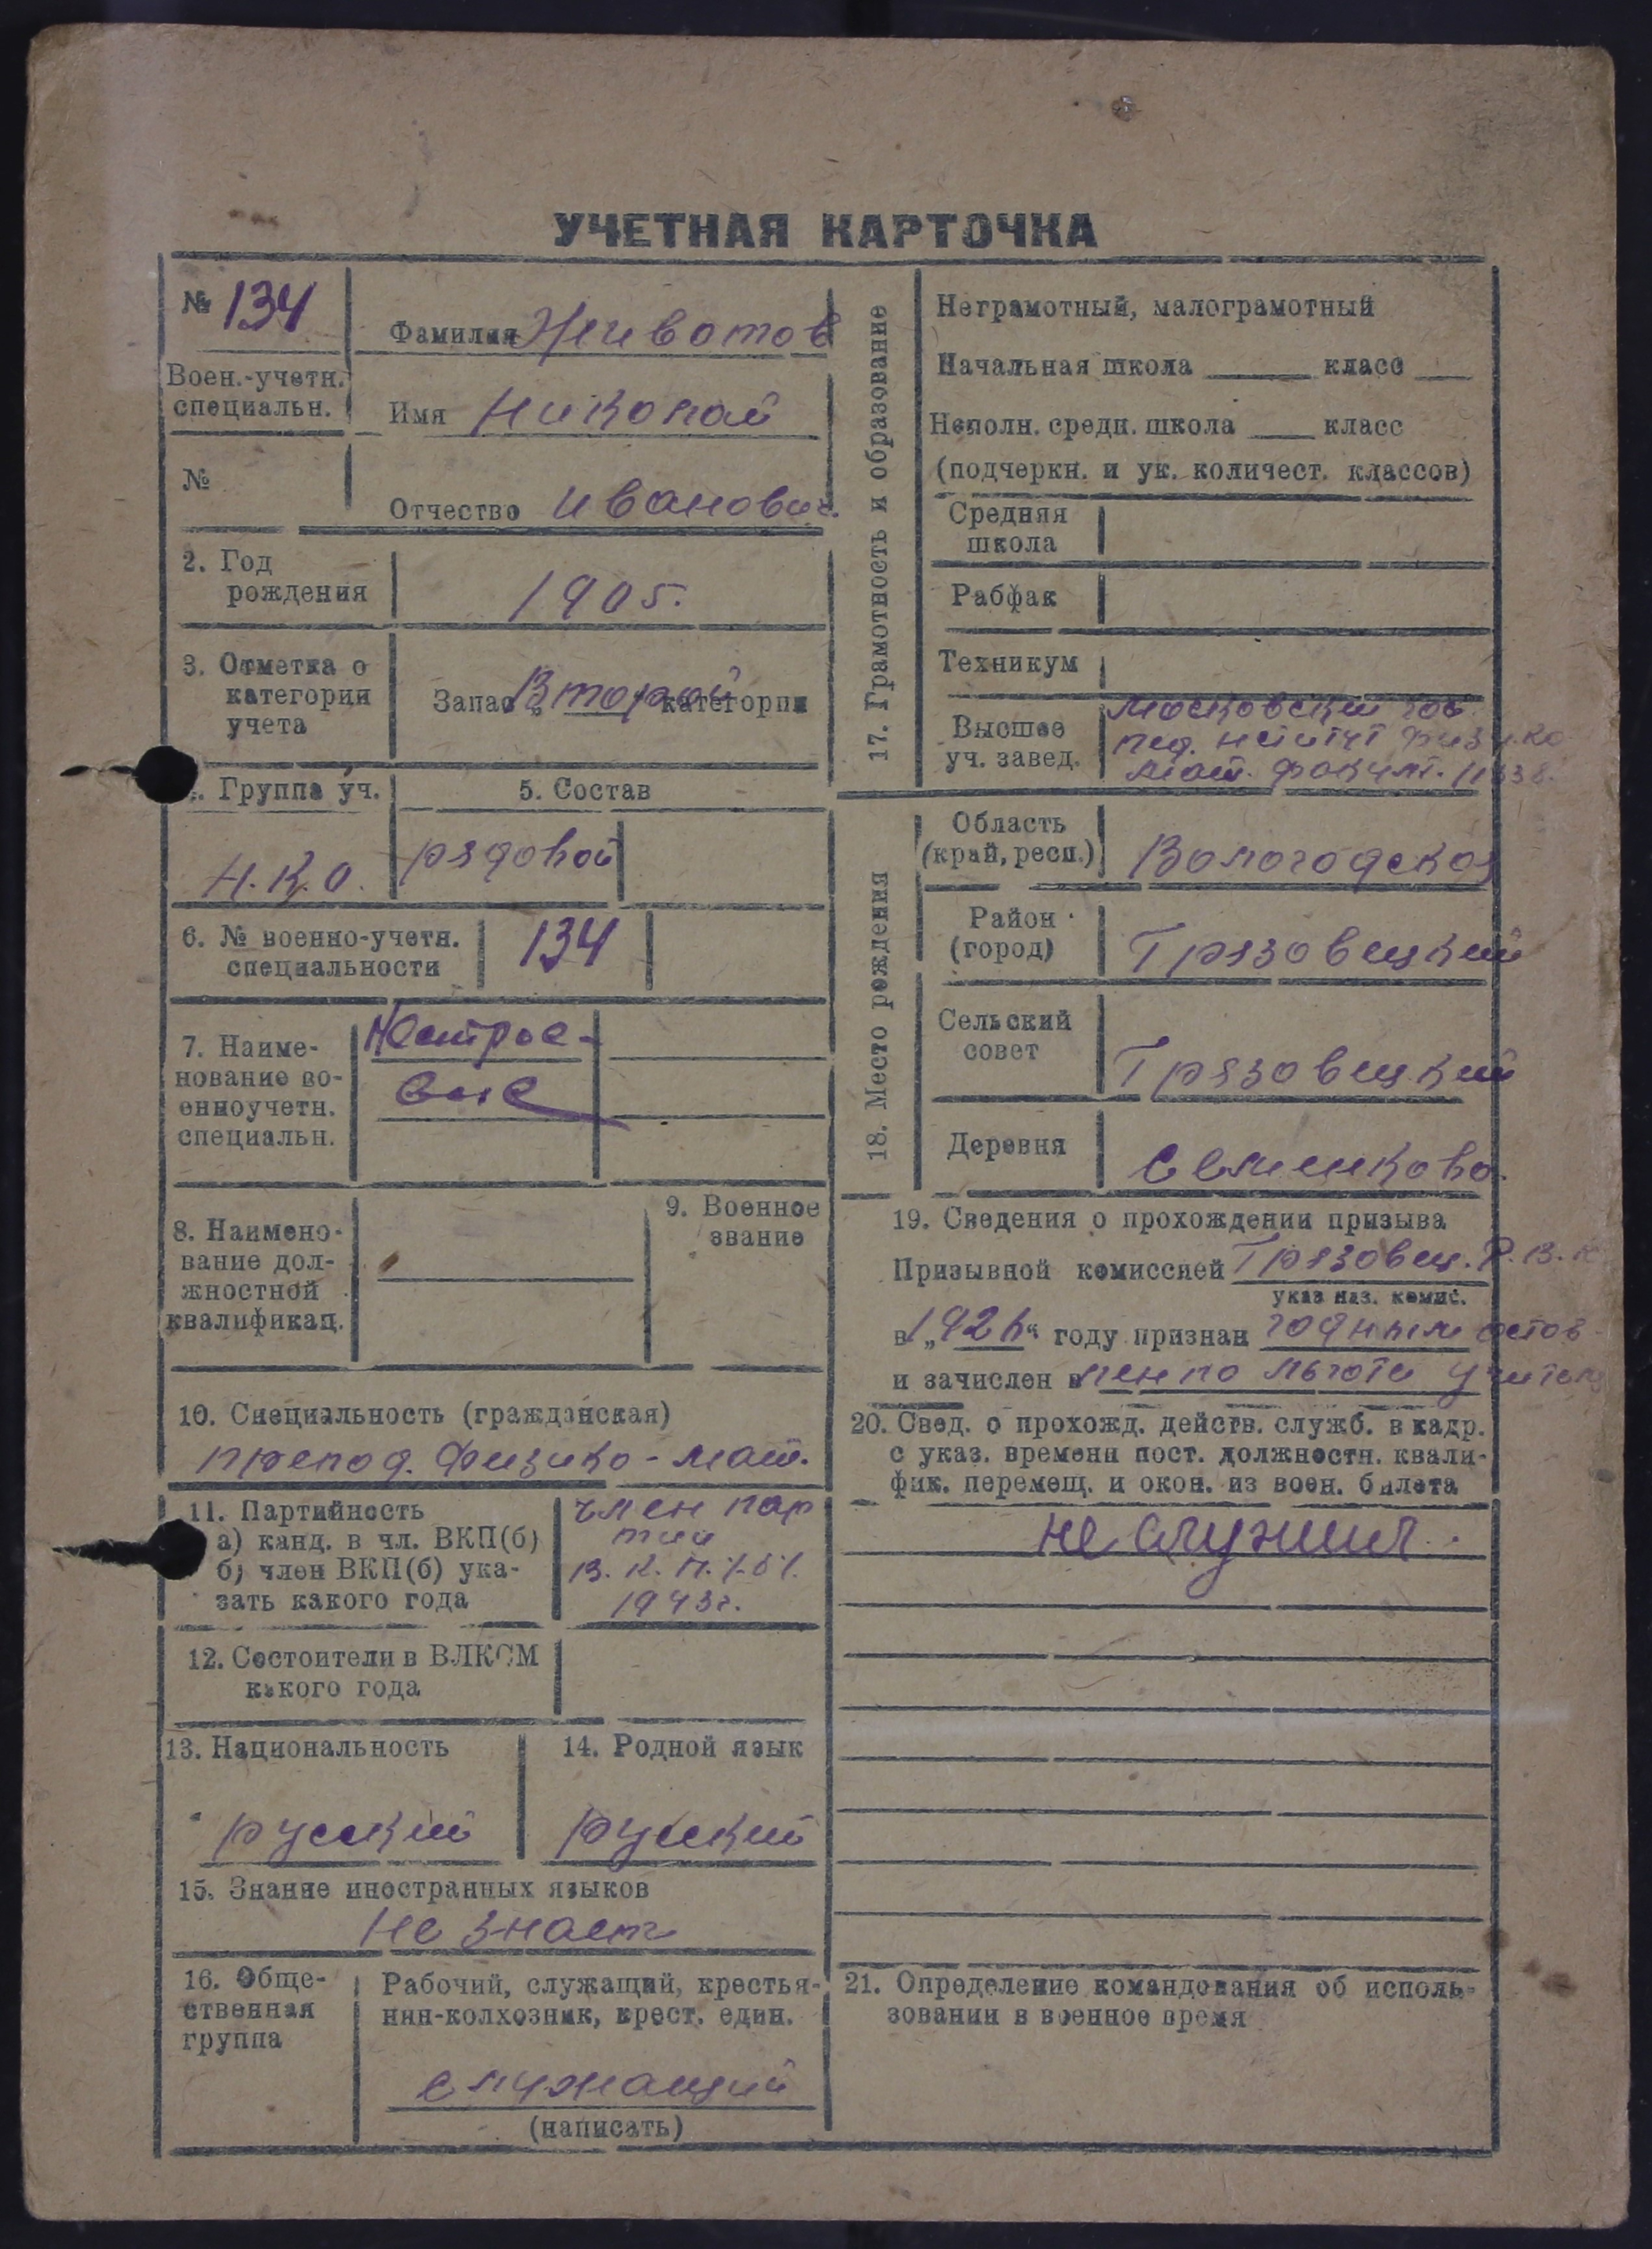 УЧЕТНАЯ КАРТОЧКА
№ 134
Воен.-учетн.
специальн.
№
Фамилия Животов
Имя Николай
Отчество Иванович.
2. Год
рождения
1905.
3. Отметка о
категории
учета
Запас „Второй“ категории
Группа уч.
Н.К.О.
5. Состав
рядовой
6. № военно-учетн.
специальности
134
7. Наиме-
нование во-
енноучетн.
специальн.
Нестрое-
вые
8. Наимено-
вание дол-
жностной
квалификац.
9. Военное
звание
10. Специальность (гражданская)
препод. Физико-мат.
11. Партийность
а) канд. в чл. ВКП(б)
б) член ВКП(б) ука-
зать какого года
член пар
тии
В.К.П.(б).
1943г.
12. Состоители в ВЛКСМ
какого года
13. Национальность
русский
14. Родной язык
русский
15. Знание иностранных языков
Не знает
16. Обще-
ственная
группа
Рабочий, служащий, крестья-
нин-колхозник, крест. един.
служащий
(написать)
17. Грамотность и образование
Неграмотный, малограмотный
Начальная школа класс
Неполн. средн. школа класс
(подчеркн. и ук. количест. классов)
Средняя
школа
Рабфак
Техникум
Высшее
уч. завед.
Московский гос
пед. физико
мат. факульт. 1938.
18. Место рождения
Область
(край, респ.)
Вологодская
Район
(город)
Грязовецкий
Сельский
совет
Грязовецкий
Деревня
Семенково.
19. Сведения о прохождении призыва
Призывной комиссией Грязовец. Р.В.К
указ наз. комис.
в „1926“ году признан годным остав
и зачислен в лен по льготе учителя
20. Свед. о прохожд. действ. служб. в кадр.
с указ. времени пост. должностн. квали-
фик. перемещ. и окон. из воен. билета
не служил.
21. Определение командования об исполь-
зовании в военное время